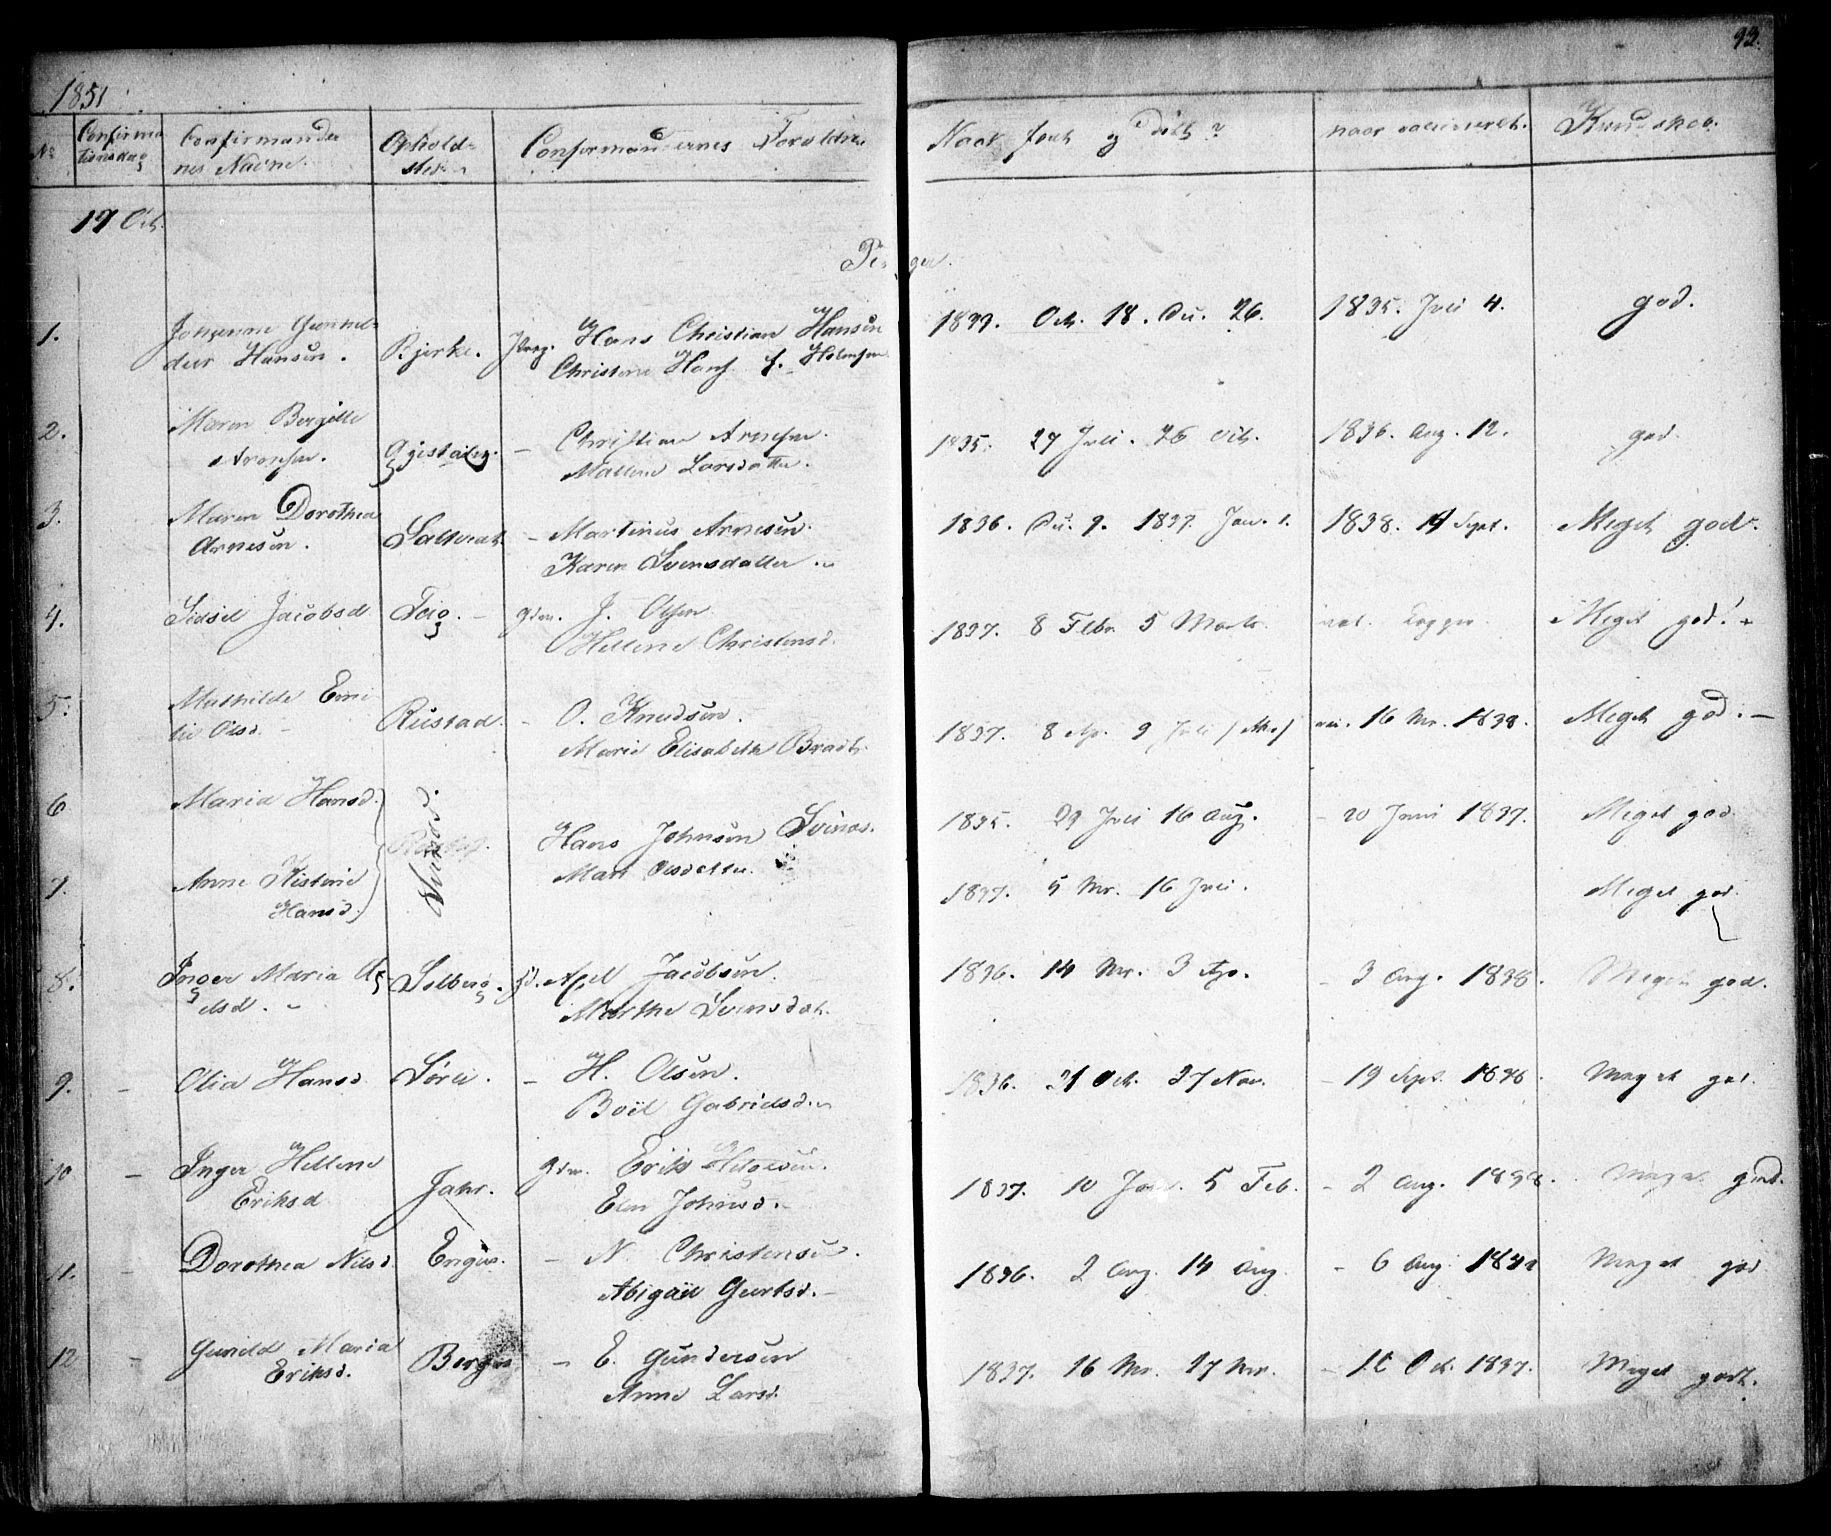 1851
93.
No Confirmationsdag Confirmandernes Navne. Opholdssted Confirmandernes Forældre. Naar født og døbt? naar vaccineret. Kundskab.
19 Oct.
Piger.
1. Johanne Gunnel- Bjerke. Hans Christian Hansen 1833. Oct. 18. Dec. 26. 1835. Juli 4. god.
Hansen. Christine Hansd f. Holmsen
2. Maren Bergitte - Christian Arnesen. 1835. 27 Juli. 26 Oct. 1836. Aug. 12. god.
Arnesen. Mallene Larsdatter.
3. Maren Dorothea Saltveit. - Martinus Arnesen. 1836. Dec. 9. 1837. Jan. 1. 1838. 14 Sept. Meget god.
Arnesen. Karen Svensdatter.
4. Sidsel Jacobsd Teig. - Gdm. J. Olsen 1837. 8 Febr. 5 Marts. nat. Kopper Meget god.
Hellene Christensd.
5. Mathilde Emi- Rustad. - O. Knudsen. 1837. 8 Ap. 9 Juli 16 Mr. 1838. Meget god. -
lie Olsd. - Marie Elisabeth Bradt.
6 Maria Hansd. Hans Johnsen Svinås. 1835. 29 Juli 16 Aug. - 20 Juni 1837. Meget god
Mari Olsdatter.
7. Anne Kistine 1837. 5 Mr. 16 Juli. Meget god.
Hansd.
8. Inger Maria Ax- Solberg. Gd. Axel Jacobsen. 1836. 14 Mr. 3 Ap. - 3 Aug. 1838. Meget god.
elsd. - Marthe Svensdat.
9. - Olia Hansd. Sørli. - H. Olsen. 1836. 21 Oct. 27 Nov. - 19 Sept. Meget god.
Boil Gabrielsd.
10 - Inger Hellene Jahr. Gdm. Erik Helgesen. 1837. 10 Jan. 5 Feb. - 2 Aug. 1838. Meget god.
Eriksd Elen Johnsd. -
11. Dorothea Nilsd. Enges. - N. Christensen. 1836. 2 Aug. 14 Aug - 6 Aug Meget god
Abigäil Gurtsd. -
12 - Gunild Maria Berger - E. Gundersen 1837. 16 Mr. 27 Mr. Oct. 1837. Meget godt.
Eriksd. Anne Larsd.